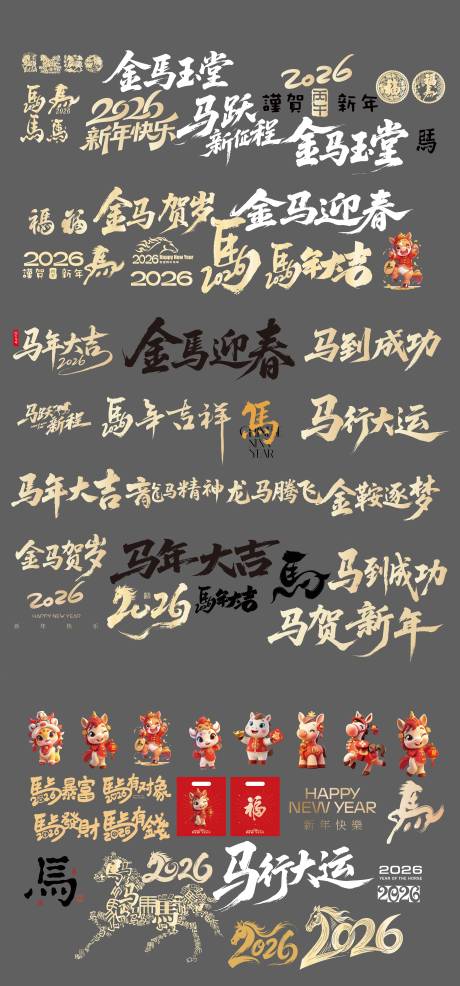 金马玉堂
2026
新年快乐
马跃
新征程
2026
謹賀
新年
金马玉堂
馬
馬
馬
馬
2026
馬
福
福
福
福
金马贺岁
金马迎春
2026
謹賀
新年
馬
2026
Happy New Year
2026
馬
2026
馬年大吉
马年大吉
2026
金馬迎春
马到成功
马跃
新程
馬年吉祥
馬
YEAR
马行大运
马年大吉
龍马精神
龙马腾飞
金鞍逐梦
金马贺岁
2026
HAPPY NEW YEAR
新年快乐
马年大吉
2026
馬年大吉
馬
马到成功
马贺新年
馬上暴富
2026
馬上有对象
2026
馬上發财
2026
馬上有錢
2026
福
HAPPY
NEW YEAR
新年快樂
馬
馬
2026
马行大运
2026
YEAR OF THE HORSE
2026
2026
2026